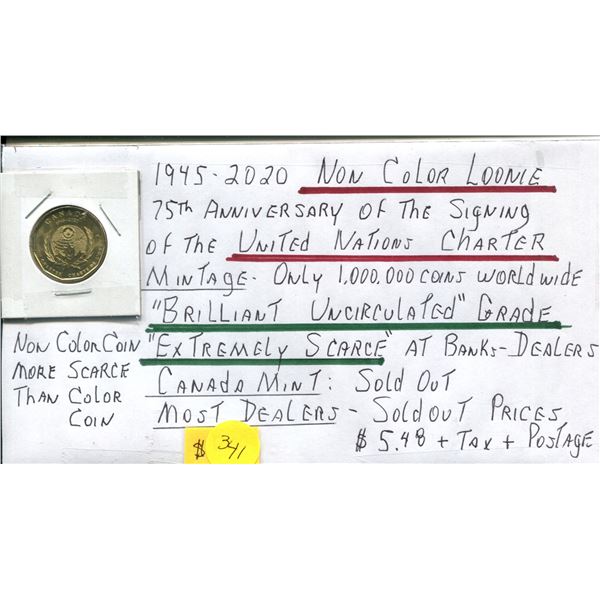 1945-2020 NON COLOR LOONIE
75th ANNIVERSARY OF THE SIGNING
OF THE UNITED NATIONS CHARTER
MINTAGE- ONLY 1,000.000 COINS WORLDWIDE
"BRILLIANT UNCIRCULATED" GRADE
"EXTREMELY SCARCE" AT BANKS-DEALERS
CANADA MINT: SOLD OUT
MOST DEALERS - SOLDOUT PRICES
$5.48 + TAX + POSTAGE
CANADA
NON COLOR COIN
MORE SCARCE
THAN COLOR
COIN
$ 3/11